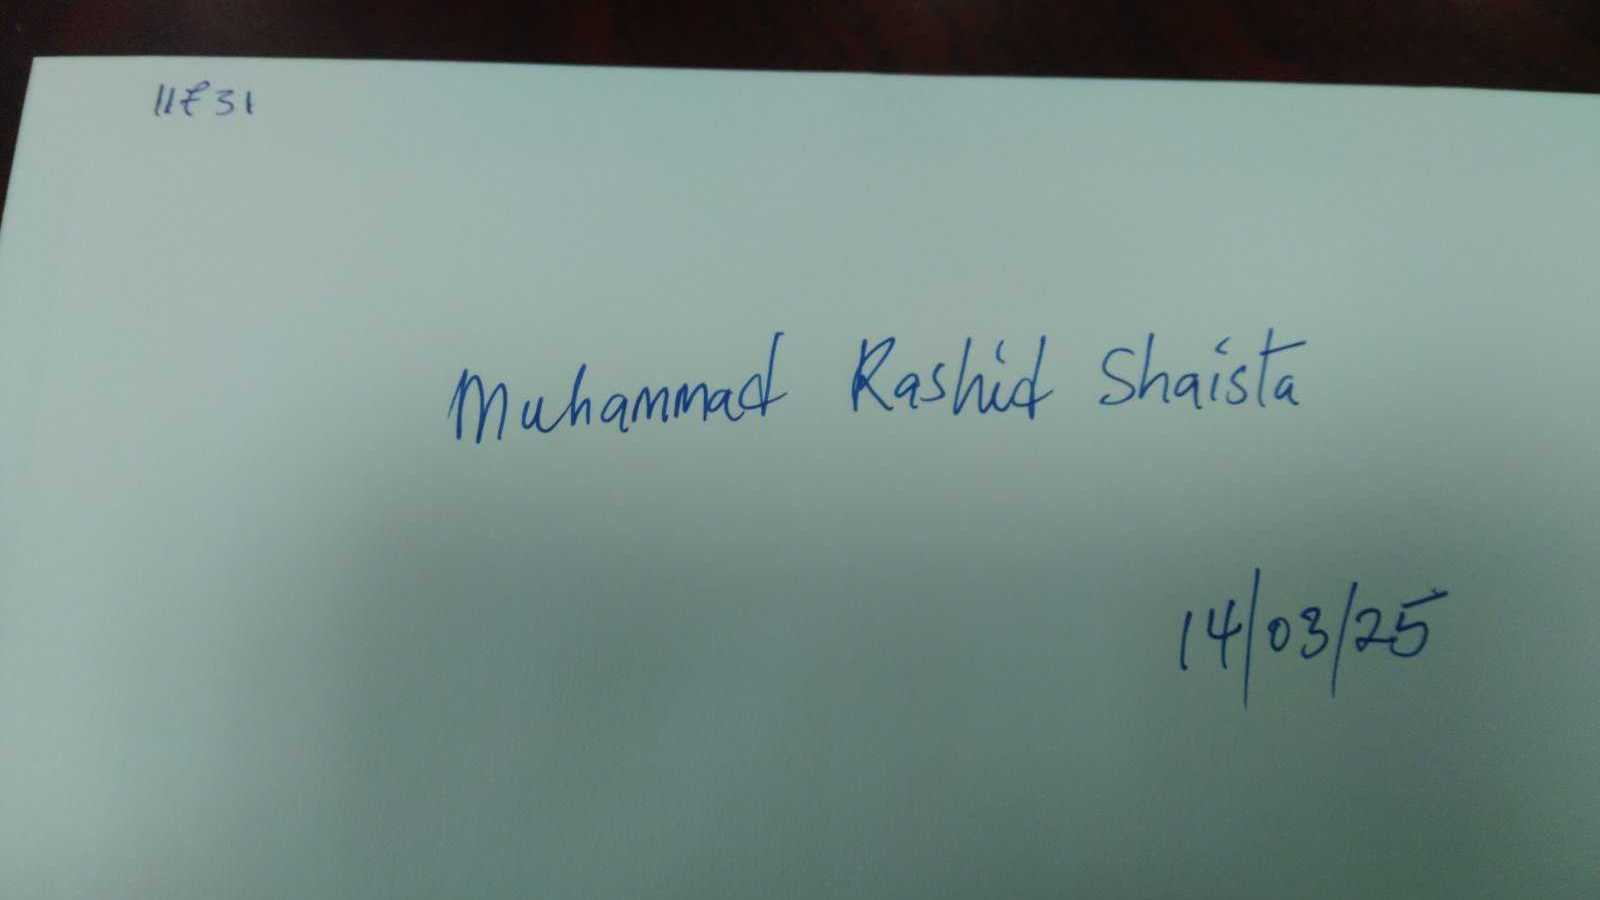 Muhammad Rashid Shaista
14/03/25